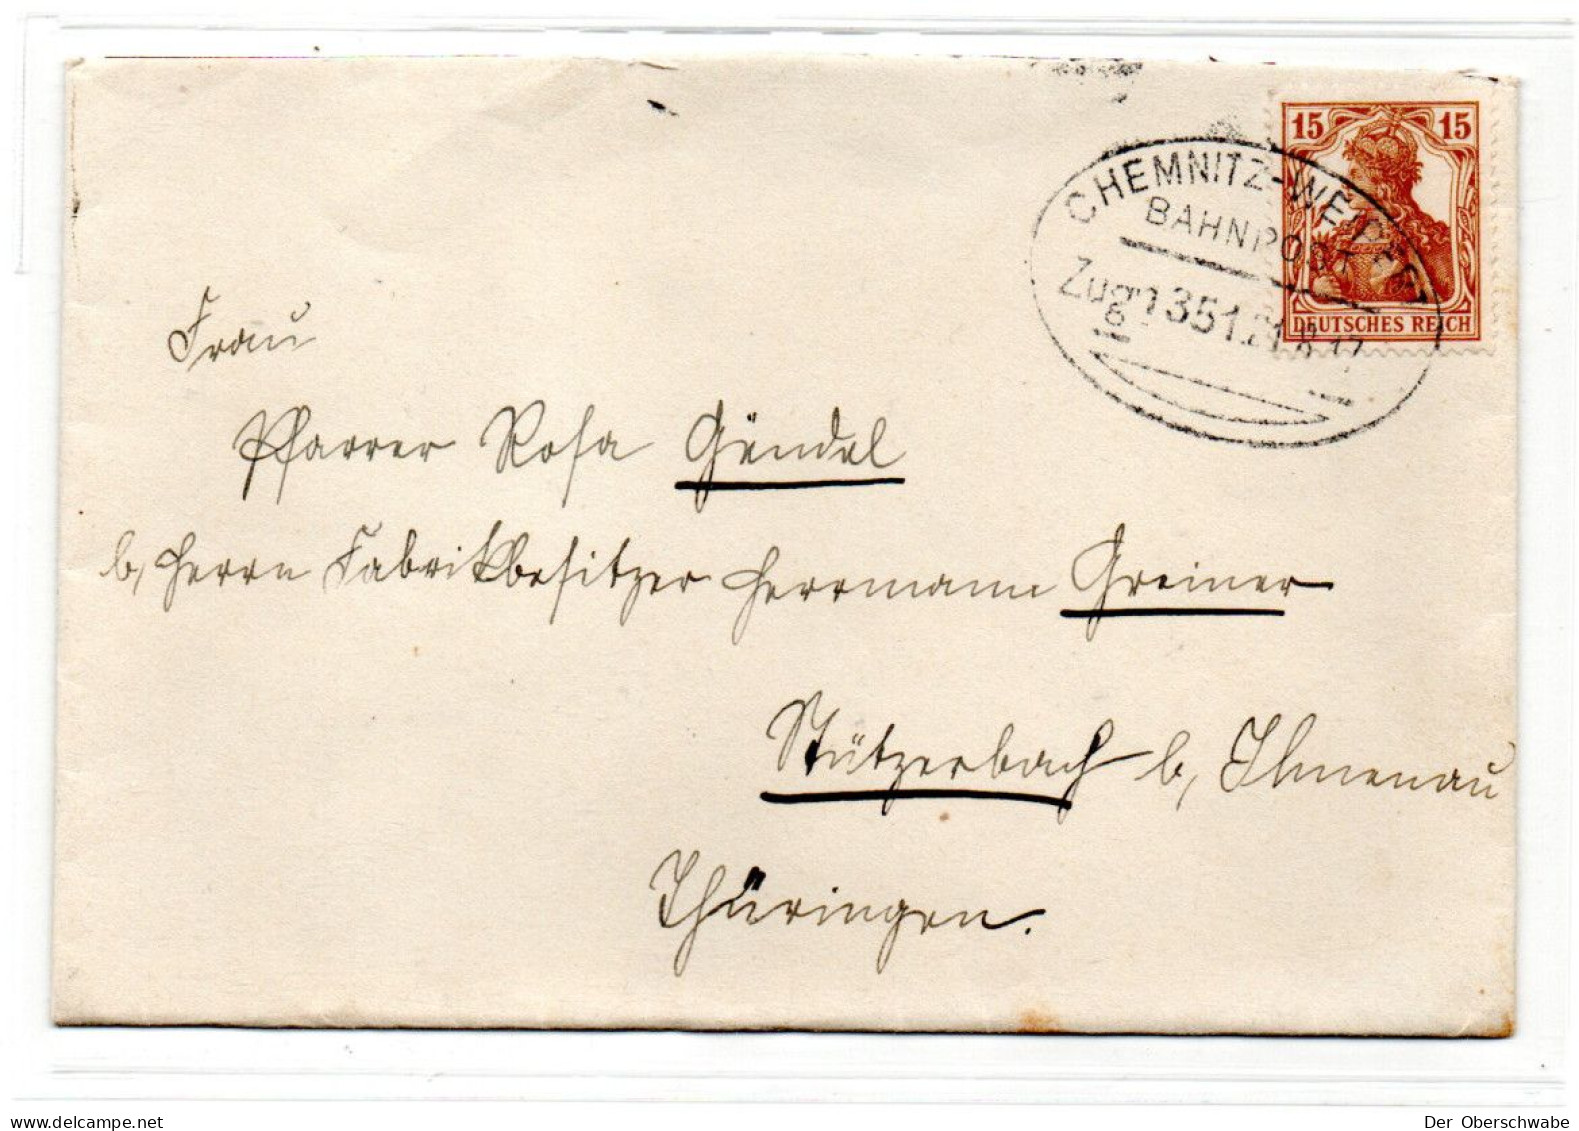 15 15
DEUTSCHES REICH
CHEMNITZ-WEIPERT
BAHNPOST
Zug 1351. 21.8.17
Frau
Pfarrer Rosa Gündel
b, Herrn Fabrikbesitzer Herrmann Greiner
Stützerbach b, Ilmenau
Thüringen.
www.delcampe.net
Der Oberschwabe